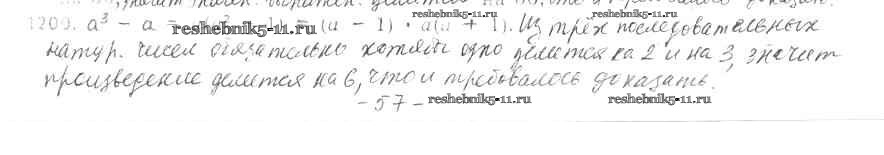 1200. a³ − a = a(a² − 1) = (a − 1) · a(a + 1). Из трёх последовательных
натур. чисел обязательно хотябы одно делится на 2 и на 3, значит
произведение делится на 6, что и требовалось доказать.
− 57 −
reshebnik5-11.ru
reshebnik5-11.ru
reshebnik5-11.ru
reshebnik5-11.ru
reshebnik5-11.ru